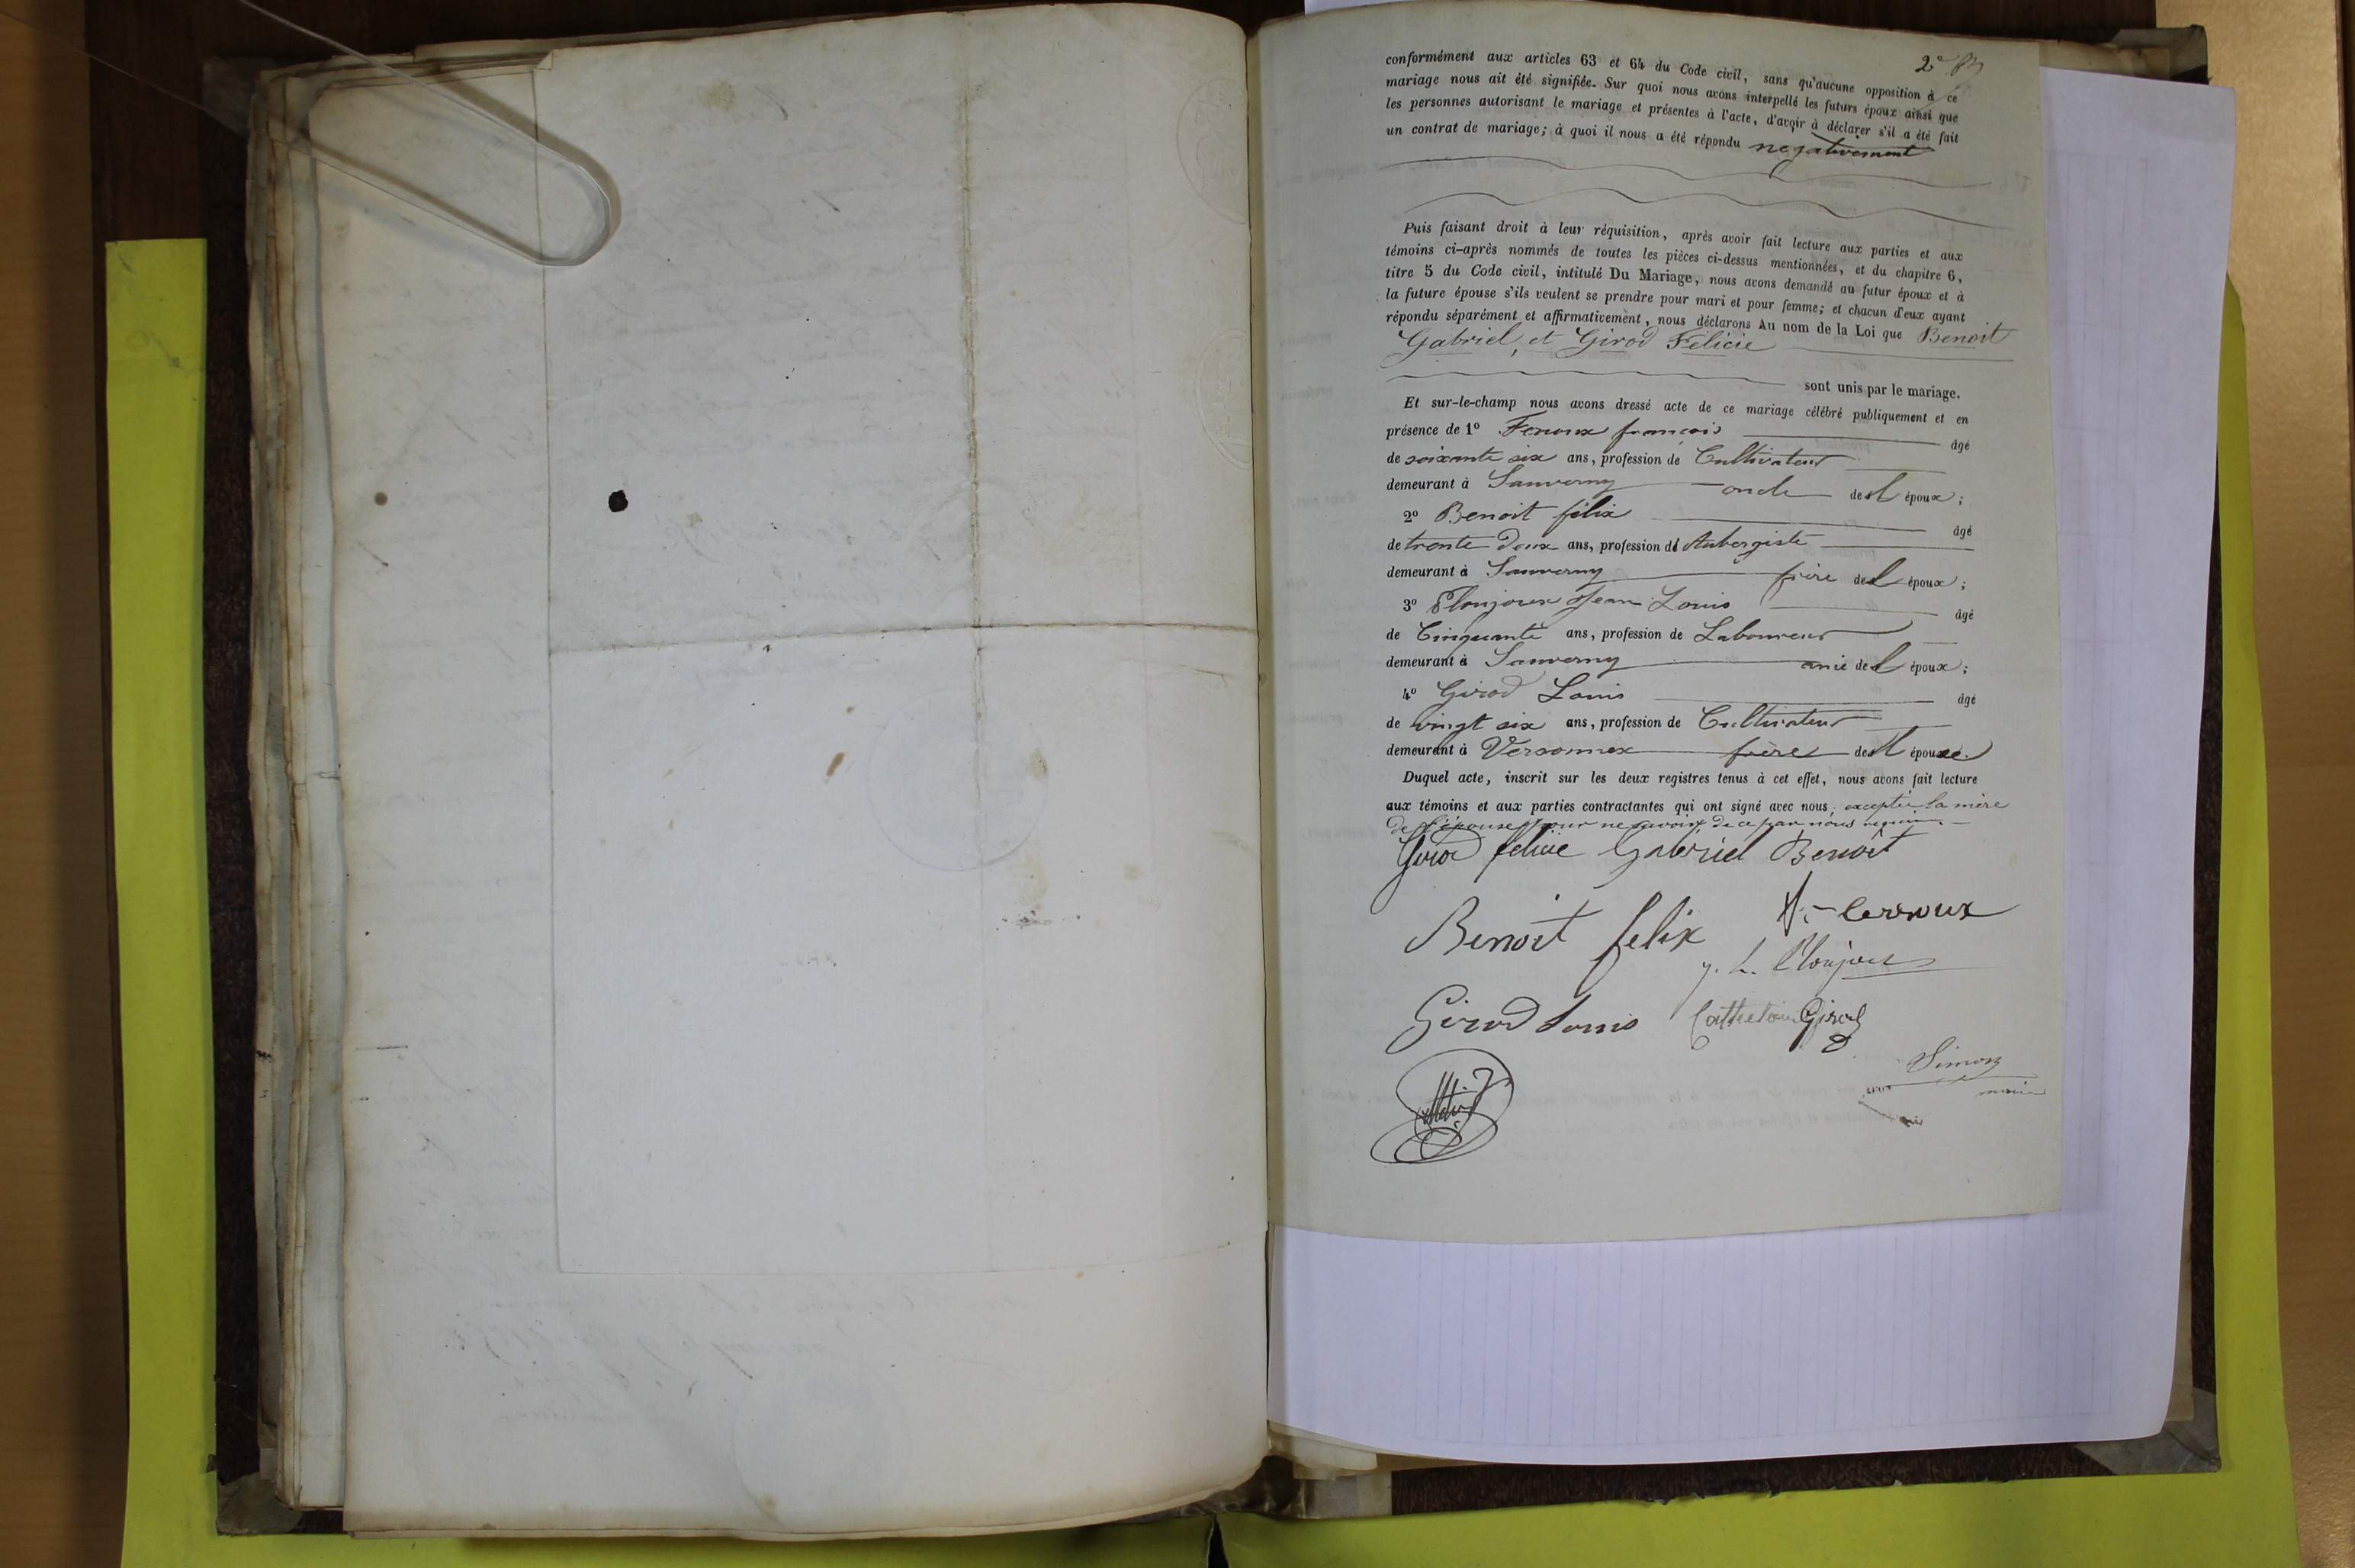 2e
conformément aux articles 63 et 64 du Code civil, sans qu'aucune opposition à ce
mariage nous ait été signifiée. Sur quoi nous avons interpellé les futurs époux ainsi que
les personnes autorisant le mariage et présentes à l'acte, d'avoir à déclarer s'il a été fait
un contrat de mariage; à quoi il nous a été répondu negativement
Puis faisant droit à leur réquisition, après avoir fait lecture aux parties et aux
témoins ci-après nommés de toutes les pièces ci-dessus mentionnées, et du chapitre 6,
titre 5 du Code civil, intitulé Du Mariage, nous avons demandé au futur époux et à
la future épouse s'ils veulent se prendre pour mari et pour femme; et chacun d'eux ayant
répondu séparément et affirmativement, nous déclarons Au nom de la Loi que Benoit
Gabriel, et Girod Félicie
sont unis par le mariage.
Et sur-le-champ nous avons dressé acte de ce mariage célébré publiquement et en
présence de 1º françois âgé
de soixante six ans, profession de Cultivateur
demeurant à Sauverny oncle de l époux;
2º Benoit félix âgé
de trente deux ans, profession d' Aubergiste
demeurant à Sauverny frère de l époux;
3º Plonjoux Jean Louis âgé
de Cinquante ans, profession de Laboureur
demeurant à Sauverny ami de l époux;
4º Girod Louis âgé
de vingt six ans, profession de Cultivateur
demeurant à Versonnex frère de l épouse.
Duquel acte, inscrit sur les deux registres tenus à cet effet, nous avons fait lecture
aux témoins et aux parties contractantes qui ont signé avec nous, exceptée la mère
de l'épouse pour ne savoir de ce par nous requise.
Girod félicie Gabriel Benoît
Benoit felix
j. L. Plonjoux
Girod Louis Girod
Simon
maire